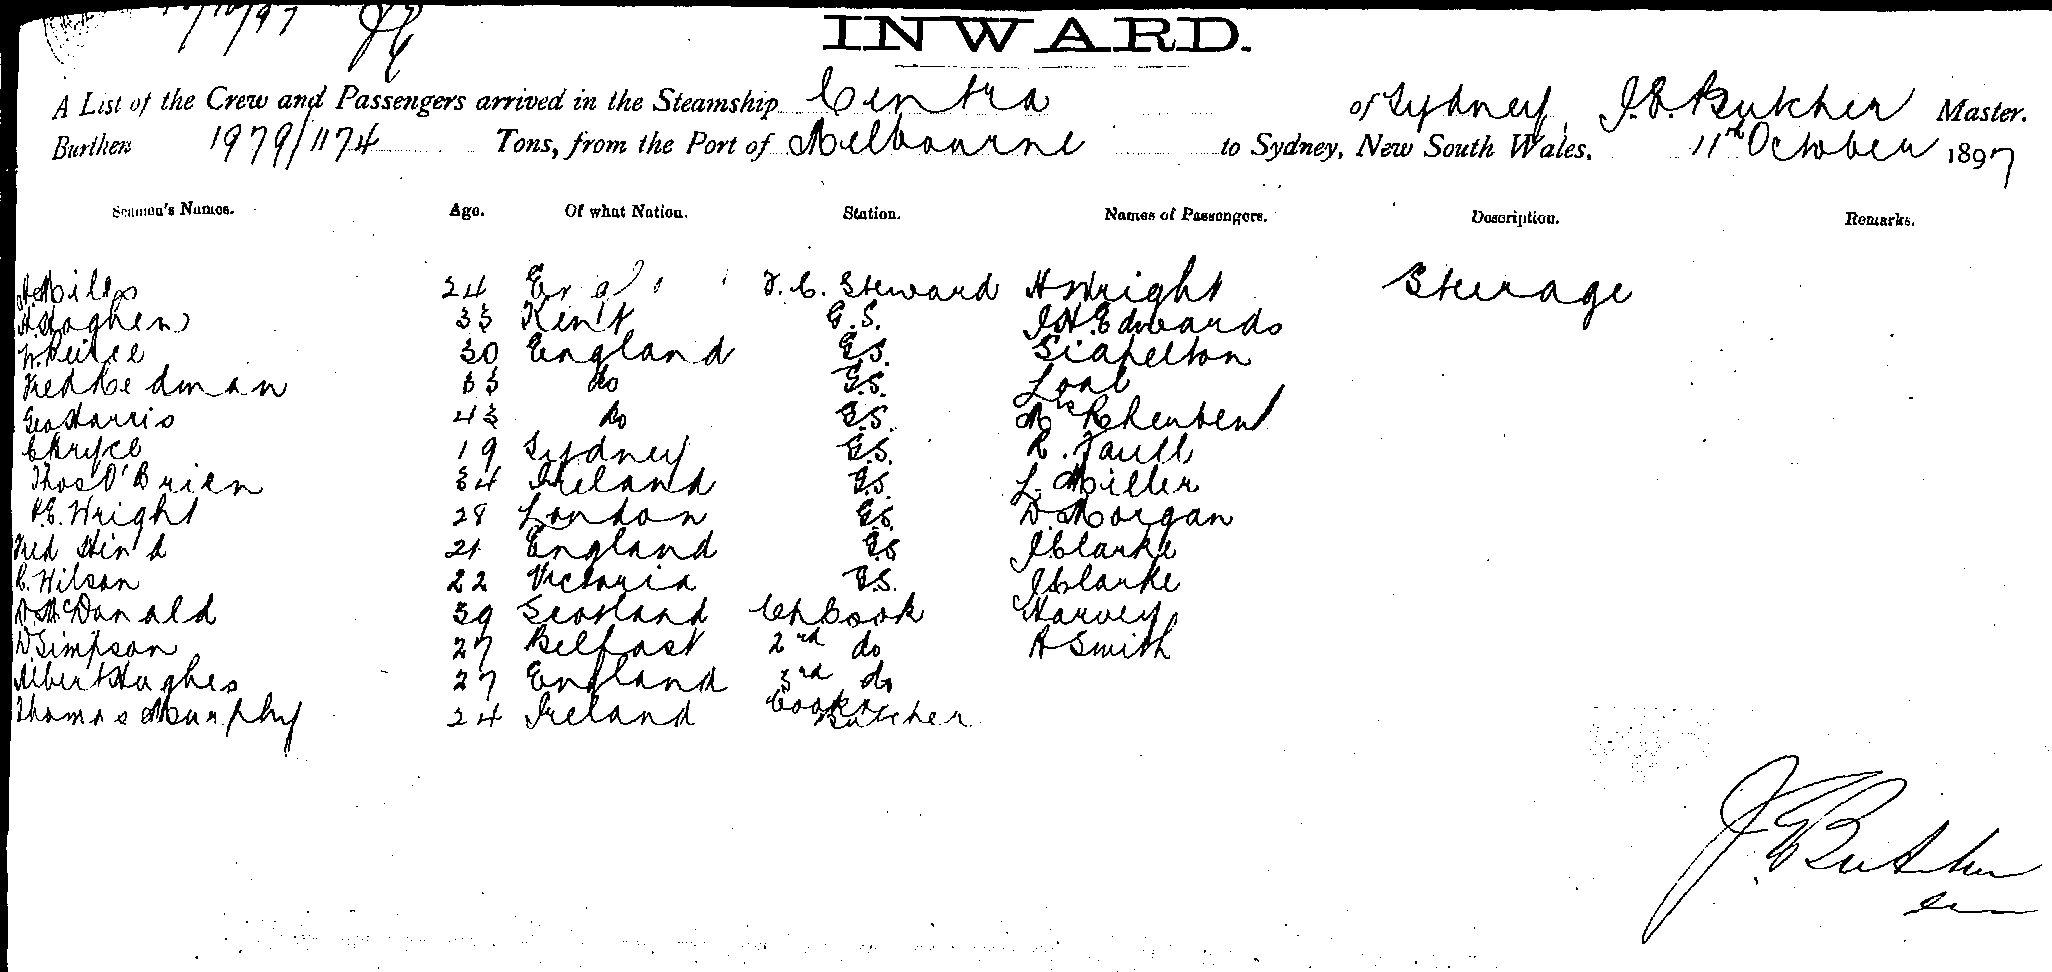 10/10/97
INWARD.
A List of the Crew and Passengers arrived in the Steamship Cintra of Sydney, J.E. Butcher Master.
Burthen 1979/1174 Tons, from the Port of Melbourne to Sydney, New South Wales, 11th October 1897
Seamen's Names. Age. Of what Nation. Station. Names of Passengers. Description. Remarks.
A. Mills 24 F.C. Steward H Wright Steerage
33 Kent G.S. J.H. Edwards
W. Peirce 30 England G.S. Stapelton
Fred Redman 33 do G.S.
Geo Harris 43 Do G.S.
C Pryce 19 Sydney G.S.
Thos O'Brien 34 Ireland G.S. L. Miller
P.E. Wright 28 London G.S. D. Morgan
Fred Hind 21 England G.S J Clarke
C. Wilson 22 Victoria G.S. J Clarke
D. McDonald 39 Scotland Ch Cook Harvey
D. Simpson 27 Belfast 2nd do A Smith
Albert Hughes 27 England 3rd do
Thomas Murphy 24 Ireland Cook & Butcher
J E Butcher